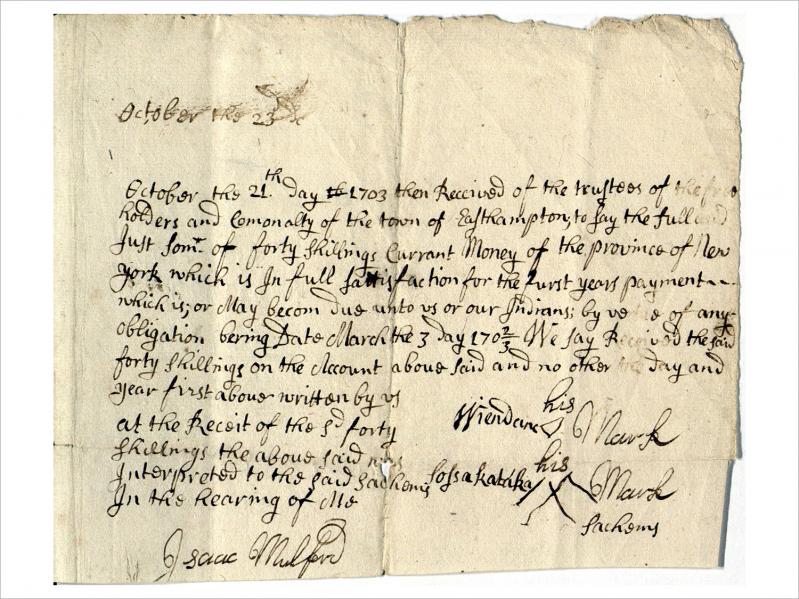 October the 23
October the 21th day 1703 then Received of the trustees of the free
holders and Comonalty of the town of Easthampton; to say the full and
Just som of forty shillings Currant Money of the province of New
york which is In full sattisfaction for the furst years payment
which is; or May becom due unto us or our Indians; by of any
obligation bering Date March the 3 day 170 2/3 We say Received the said
forty shillings on the Account above said and no other the day and
year first above written by us
at the Receit of the sd forty
shillings the above said was
Interpreted to the said sachems
In the hearing of Me
Isaac Mulford
his
Wiendanc Mark
his
sossakataka Mark
sachems